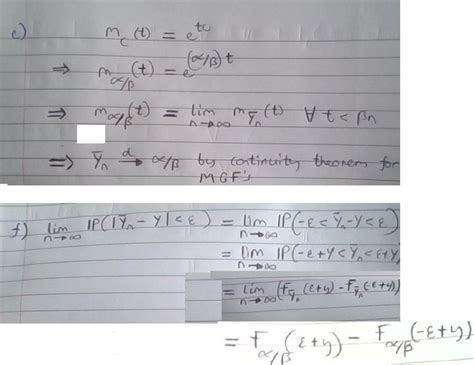 e) m_c(t) = e^{tc}
⇒ m_{α/β}(t) = e^{(α/β)t}
⇒ m_{α/β}(t) = lim_{n→∞} m_{Ȳ_n}(t) ∀ t < βn
⇒ Ȳ_n →^d α/β by continuity theorem for
MGF's
f) lim_{n→∞} IP(|Ȳ_n - Y| < ε) = lim_{n→∞} IP(-ε < Ȳ_n - Y < ε)
= lim_{n→∞} IP(-ε+Y < Ȳ_n < ε+Y)
= lim_{n→∞} (F_{Ȳ_n}(ε+y) - F_{Ȳ_n}(-ε+y))
= F_{α/β}(ε+y) - F_{α/β}(-ε+y)